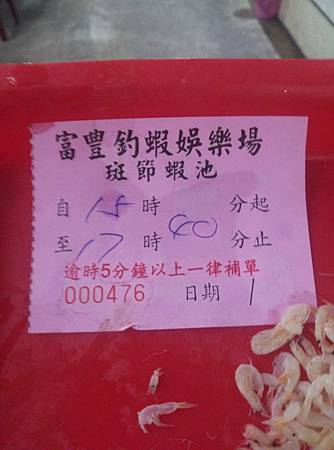 富豐釣蝦娛樂場
斑節蝦池
自 15 時 40 分起
至 17 時 分止
逾時5分鐘以上一律補單
000476 日期 1